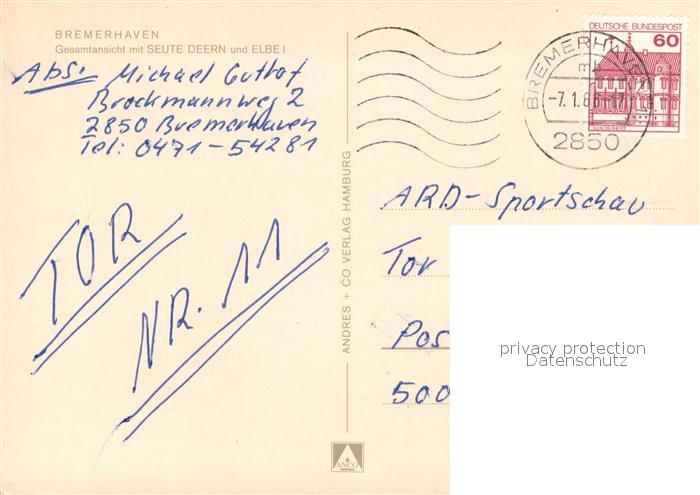 BREMERHAVEN
Gesamtansicht mit SEUTE DEERN und ELBE 1
Abs. Michael Guthof
Brockmannweg 2
2850 Bremerhaven
Tel: 0471-54281
TOR
NR. 11
ANDRES + CO VERLAG HAMBURG
ANCO
DEUTSCHE BUNDESPOST
60
BREMERHAVEN
mb
-7.1.86-17
2850
ARD-Sportschau
Tor
Pos
500
privacy protection
Datenschutz